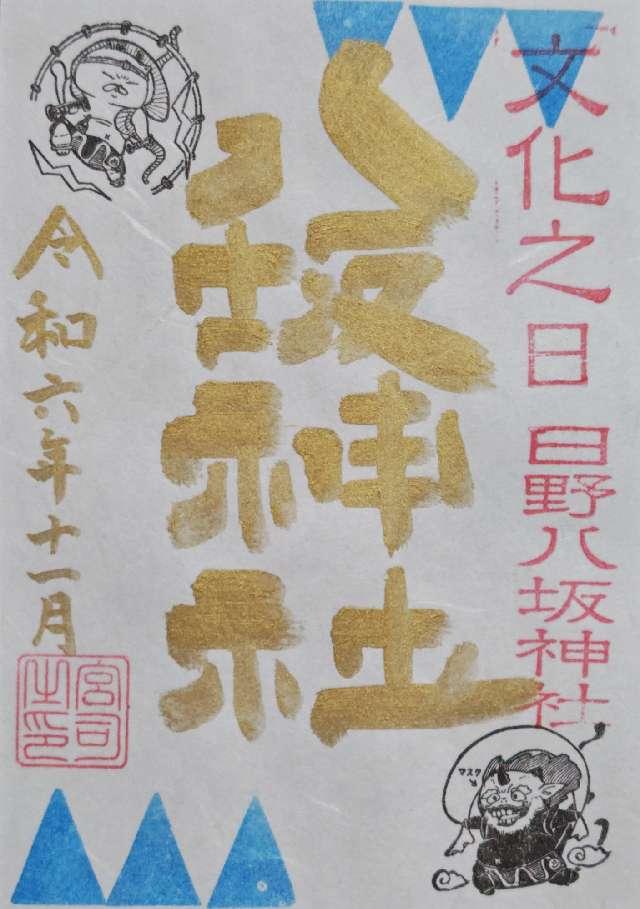 文化之日
日野八坂神社
八坂神社
令和六年十一月
宮司之印
マスク